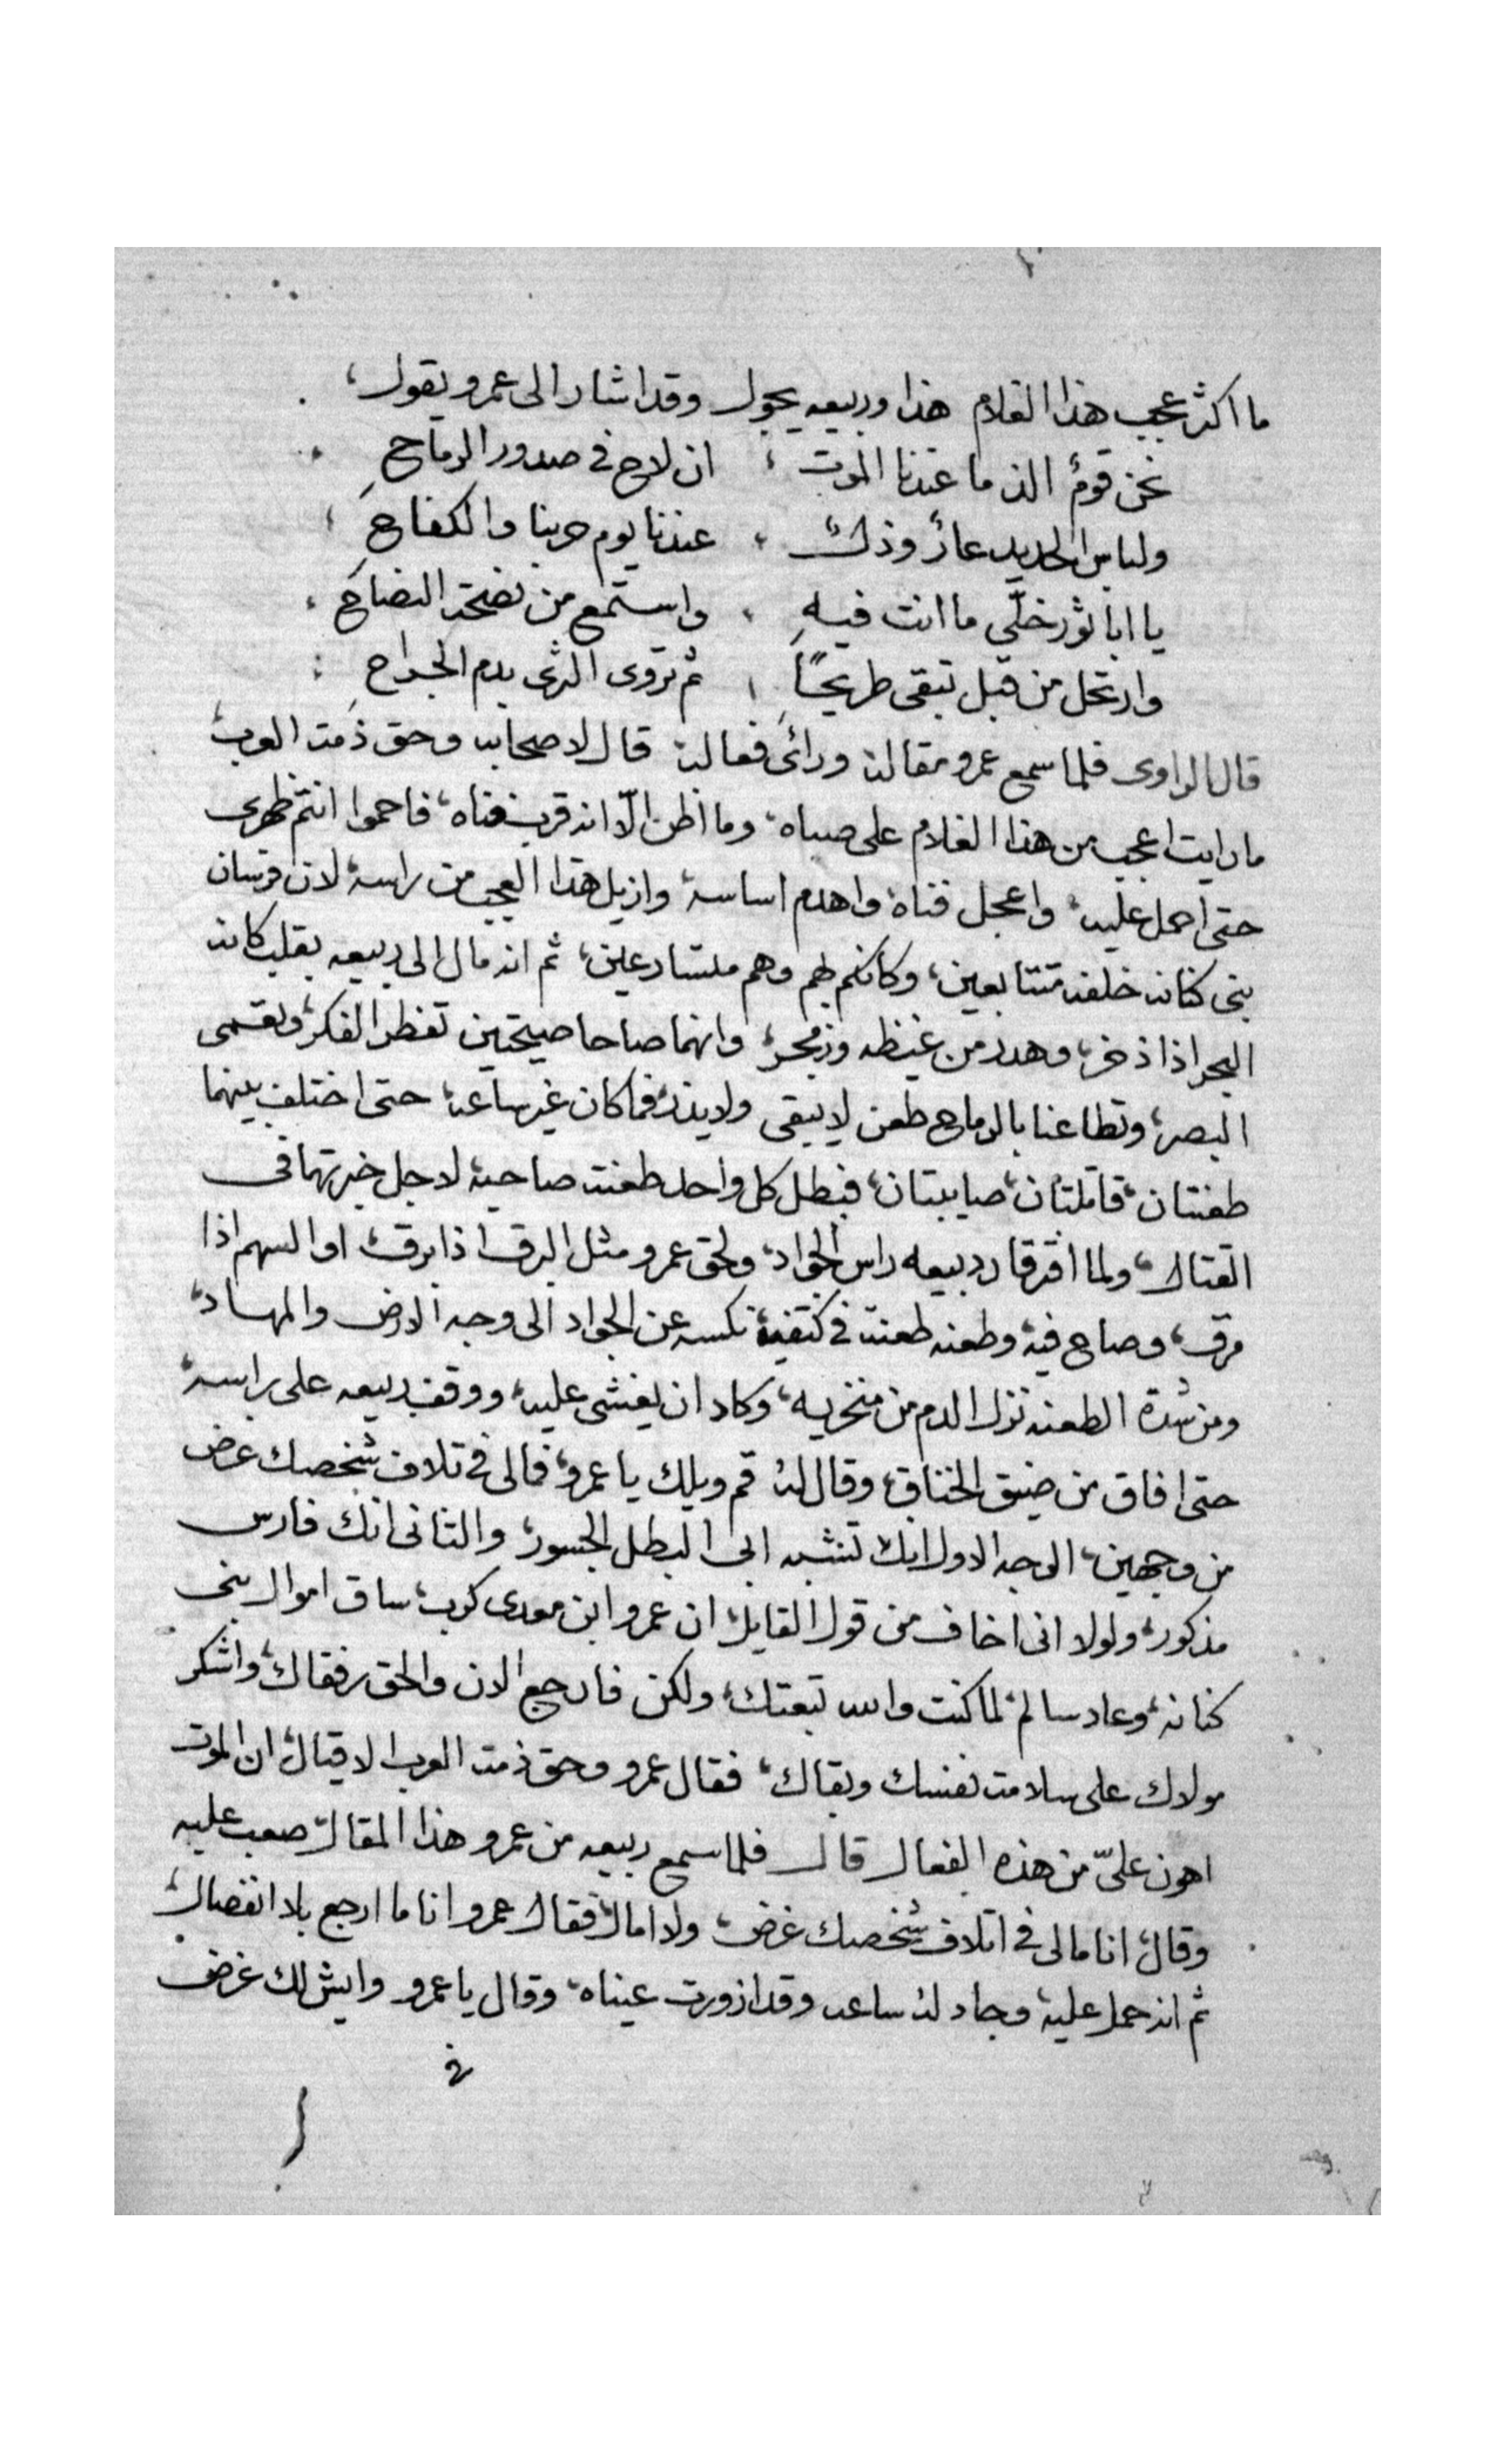 ما اكثر عجب هذا الغلام هذا وربيعه يجول وقد اشار الى عمرو يقول
نحن قومٌ الذ ما عندنا الموت ، ان لاح فى صدور الرماح
ولباس الحديد عارٌ وذل ، عندنا يوم حربنا والكفاح
يا ابا ثور خلّى ما انت فيه ، واستمع من نصحة النصاح
وارتحل من قبل تبقى طريحًا ، ثم تروى الثرى بدم الجراح
قال الراوى فلما سمع عمرو مقاله وراىَ فعاله قال لاصحابه وحق ذمة العرب
ما رايت اعجب من هذا الغلام على صباه، وما اظن الّا انه قرب فناه، فاحموا انتم ظهرى
حتى احمل عليه، واعجل فناه، واهدم اساسه، وازيل هذا العجب من راسه، لان فرسان
بنى كنانه خلفه متتابعين، وكانكم بهم وهم متسارعين، ثم انه مال الى ربيعه بقلب كانه
البحر اذا ذخر، وهدر من غيظه وزمجر، وانهما صاحا صيحتين تفطر الفكر، وتعمى
البصر، وتطاعنا بالرماح طعن لا يبقى ولا يذر، فما كان غير ساعه، حتى اختلف بينهما
طعنتان، قاتلتان، صايبتان، فبطل كل واحد طعنت صاحبه لاجل خبرتهما فى
القتال، ولما افترقا رد ربيعه راس الجواد، ولحق عمرو مثل البرق اذا برق، او السهم اذا
مرق، وصاح فيه، وطعنه طعنت فى كتفيه، نكسه عن الجواد الى وجه الارض والمهاد،
ومن شدة الطعنه نزل الدم من منخريه، وكاد ان يغشى عليه، ووقف ربيعه على راسه،
حتى افاق من ضيق الخناق، وقال له قم ويلك يا عمرو، فمالى فى تلاف شخصك غرض
من وجهين، الوجه الاول انك تنتسب الى البطل الجسور، والثانى انك فارس
مذكور، ولولا انى اخاف من قول القايل، ان عمرو ابن معدى كرب، ساق اموال بنى
كنانه، وعاد سالم، لما كنت والله تبعتك، ولكن فارجع الان والحق رفقاك، واشكر
مولاك على سلامت نفسك وبقاك، فقال عمرو وحق ذمت العرب الاقيال، ان الموت
اهون علىّ من هذه الفعال قال فلما سمع ربيعه من عمرو هذا المقال، صعب عليه
وقال، انا مالى فى اتلاف شخصك غرض، ولا امال، فقال عمرو انا ما ارجع بلا انفصال،
ثم انه حمل عليه، وجاد له ساعه وقد ازورت عيناه، وقال يا عمرو وايش لك غرض
فى